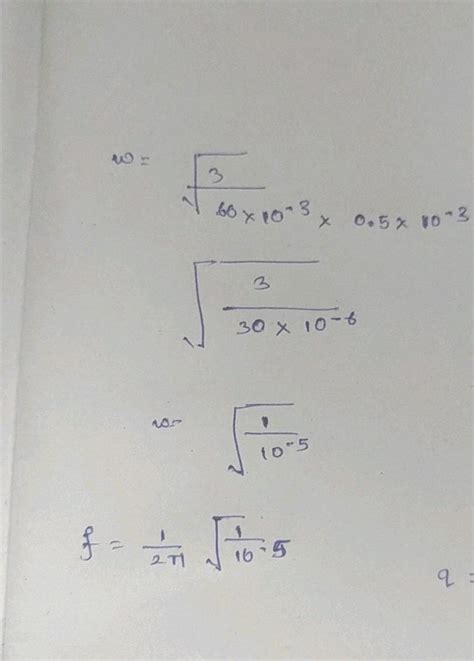 w = √(3 / 60 × 10⁻³ × 0.5 × 10⁻³)
√(3 / 30 × 10⁻⁶)
w = √(1 / 10⁻⁵)
f = 1/2π √(1 / 10⁻⁵)
q =